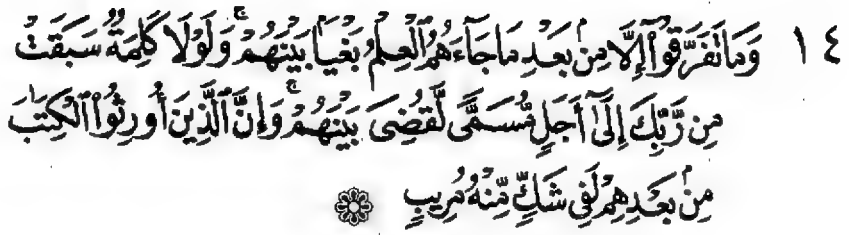 ١٤ وَمَا تَفَرَّقُوٓا۟ إِلَّا مِنۢ بَعْدِ مَا جَآءَهُمُ ٱلْعِلْمُ بَغْيًۢا بَيْنَهُمْ ۚ وَلَوْلَا كَلِمَةٌ سَبَقَتْ
مِن رَّبِّكَ إِلَىٰٓ أَجَلٍ مُّسَمًّى لَّقُضِىَ بَيْنَهُمْ ۚ وَإِنَّ ٱلَّذِينَ أُورِثُوا۟ ٱلْكِتَٰبَ
مِنۢ بَعْدِهِمْ لَفِى شَكٍّ مِّنْهُ مُرِيبٍ ۞